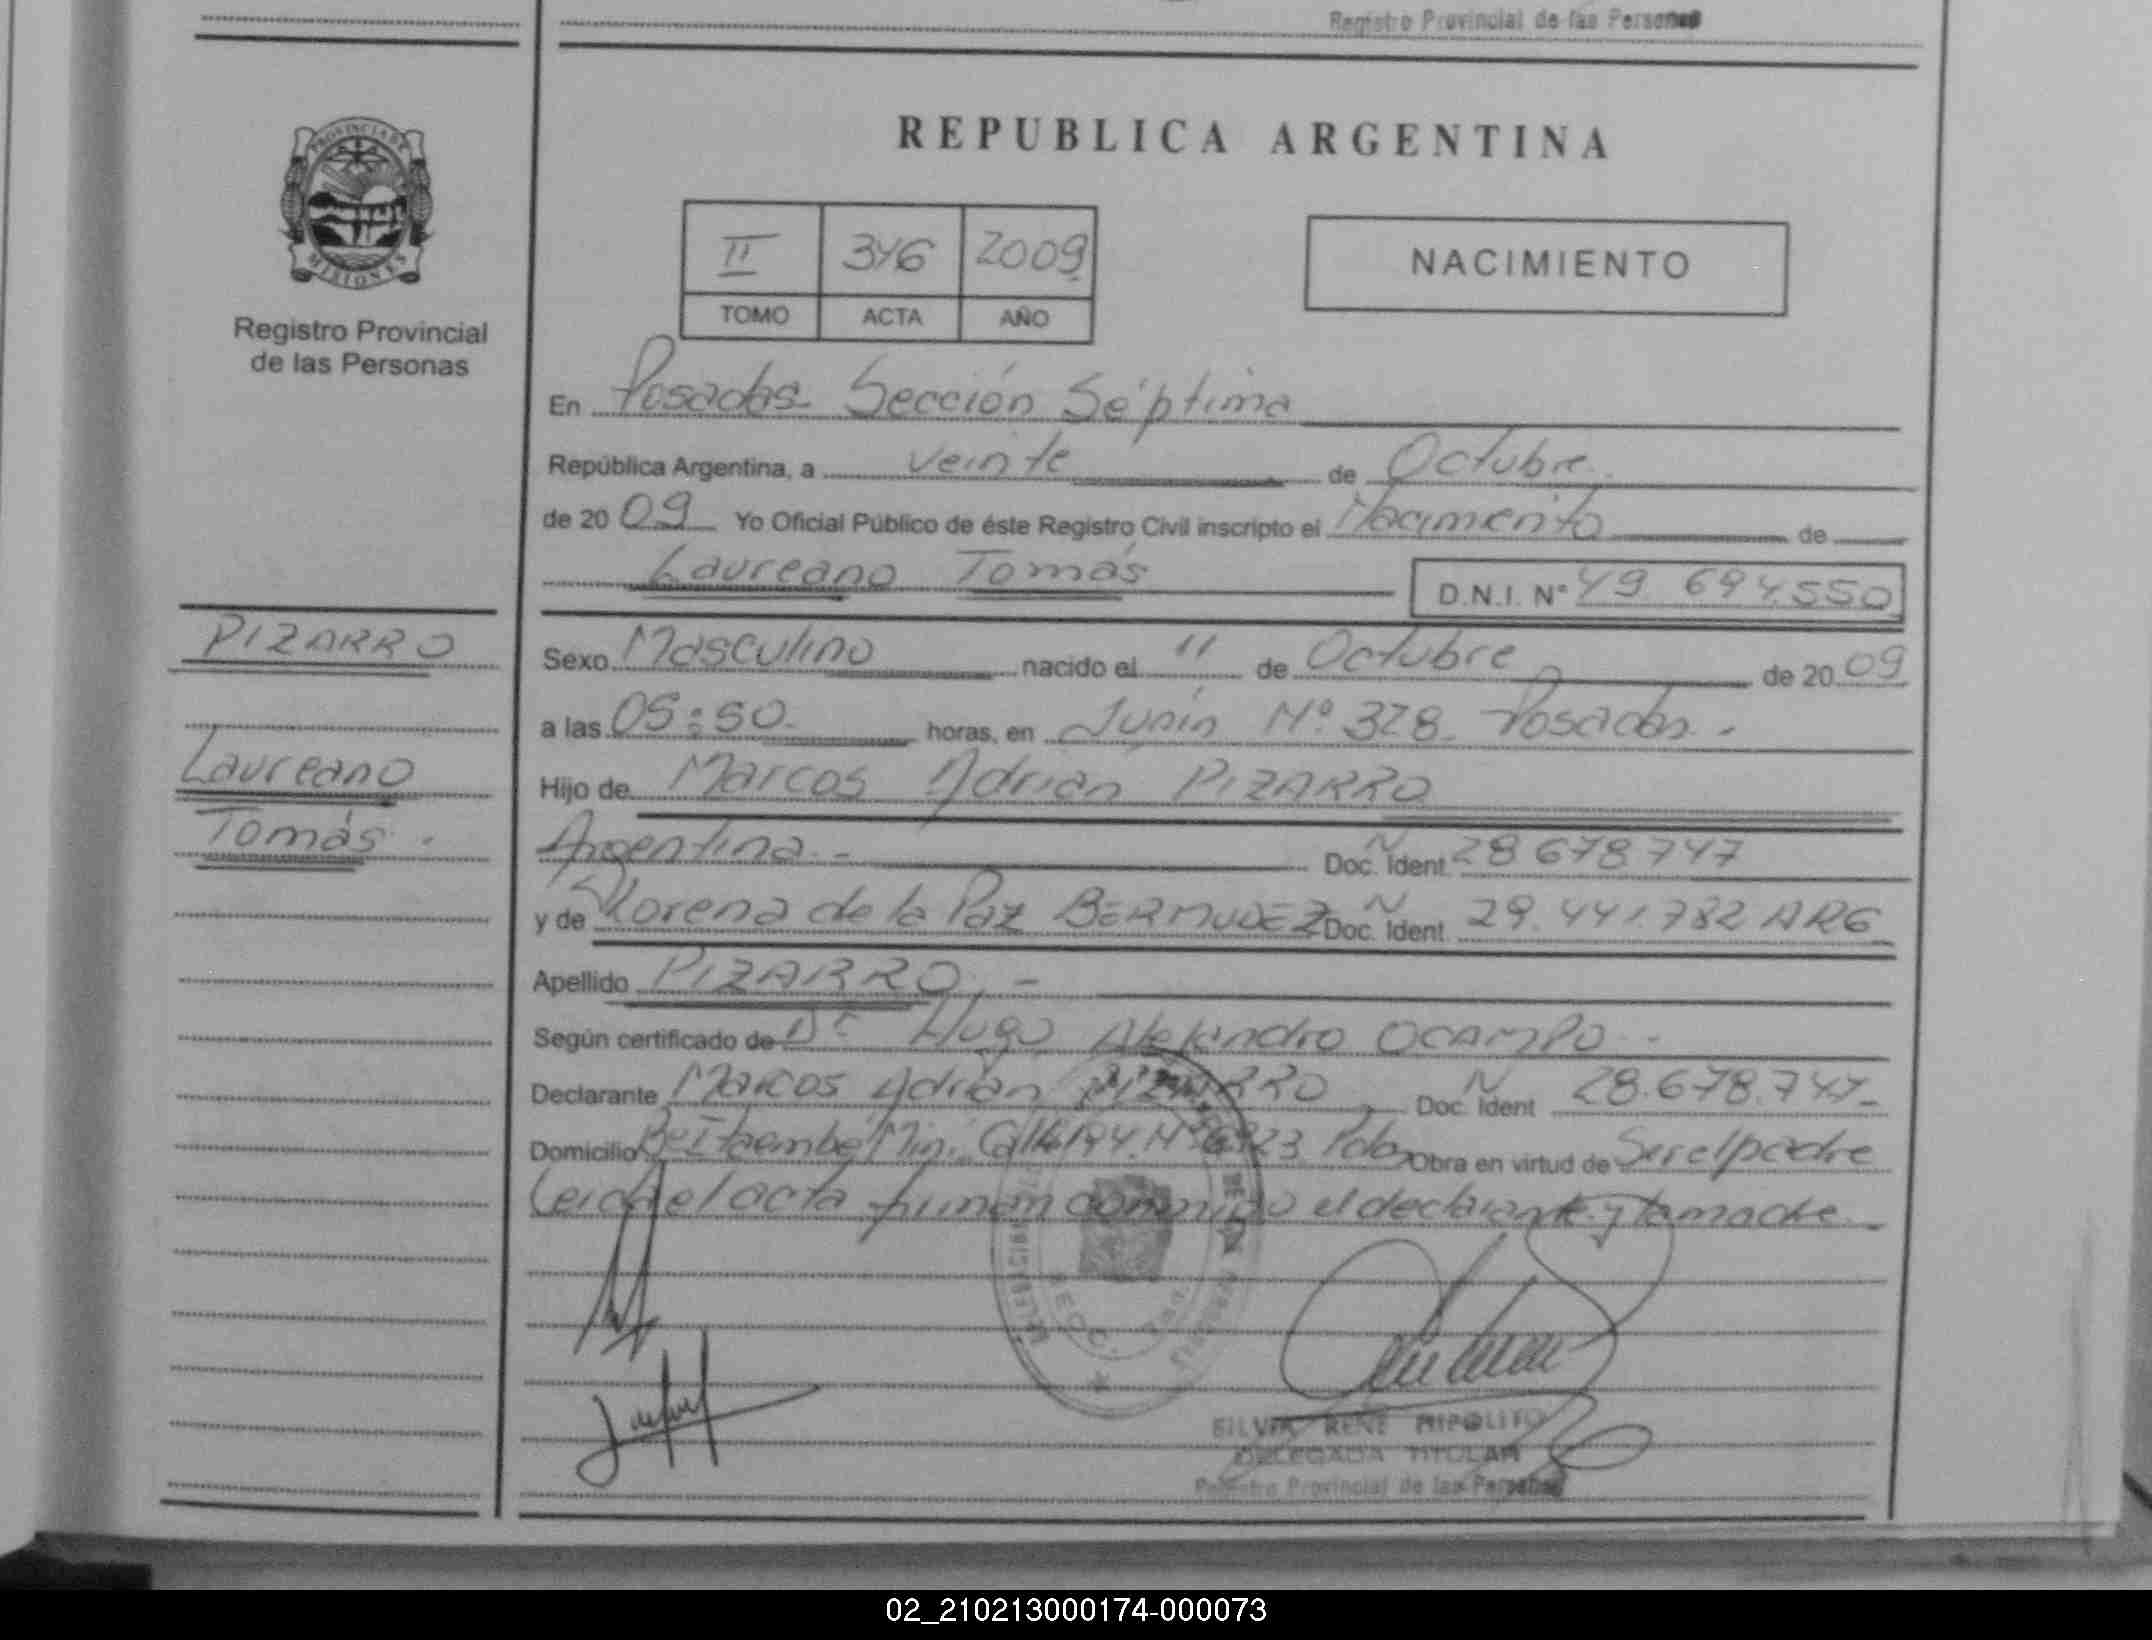 Registro Provincial de las Personas
REPUBLICA ARGENTINA
PROVINCIA DE
MISIONES
Registro Provincial
de las Personas
II 346 2009
TOMO ACTA AÑO
NACIMIENTO
En Posadas Sección Séptima
República Argentina, a veinte de Octubre
de 2009 Yo Oficial Público de éste Registro Civil inscripto el Nacimiento de
Laureano Tomás D.N.I. Nº 49 694.550
PIZARRO
Laureano
Tomás.
Sexo Masculino nacido el 11 de Octubre de 2009
a las 05:50 horas, en Junín Nº 328 Posadas.
Hijo de Marcos Adrián PIZARRO
Argentina.- Doc. Ident. N 28 678 747
y de Lorena de la Paz BERMUDEZ Doc. Ident. N 29.441.782 ARG
Apellido PIZARRO.-
Según certificado de Dr Hugo Alejandro OCAMPO.-
Declarante Marcos Adrián PIZARRO Doc. Ident N 28.678.747-
Domicilio Mini Calle Obra en virtud de Ser el padre
Leida el acta firman conmigo el declarante y la madre.
SECC.
SILVIA RENE HIPOLITO
DELEGADA TITULAR
Registro Provincial de las Personas
02_210213000174-000073